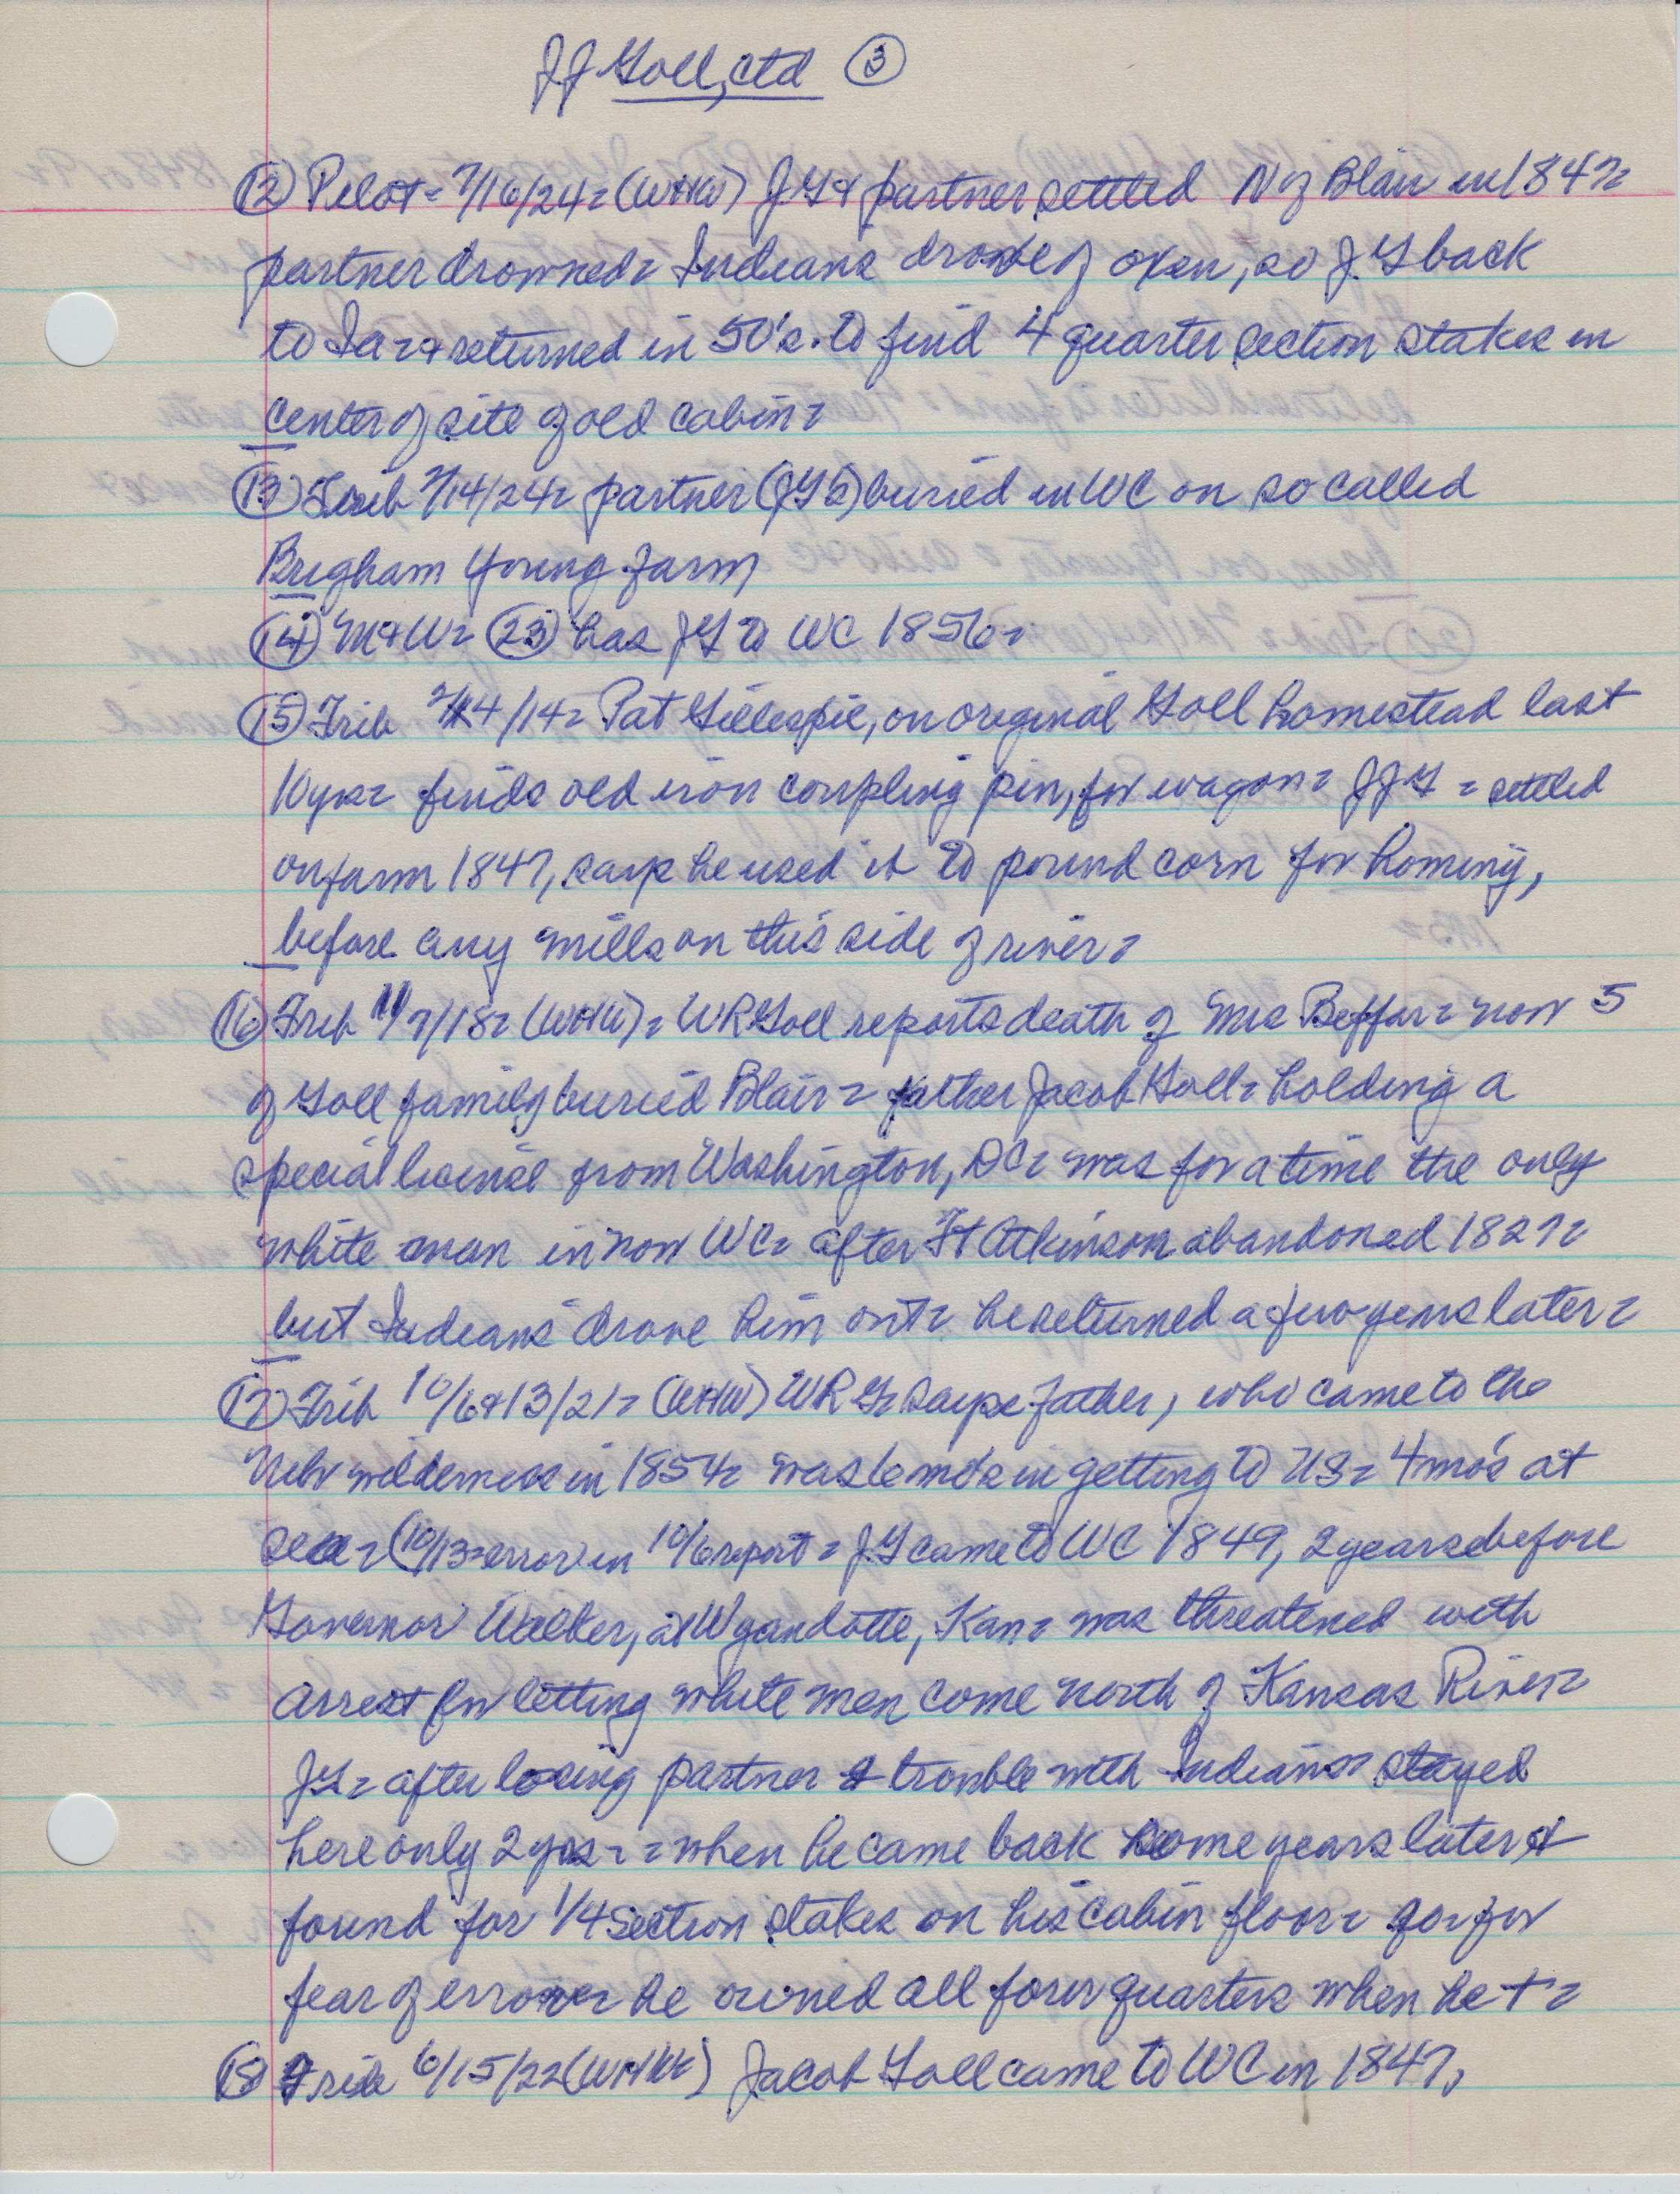 JJ Goll, ctd ③
⑫ Pilot = 7/16/24 = (WHW) JG & partner settled N of Blair in 1847 =
partner drowned = Indians drove of oxen, so JG back
to Ia = & returned in 50's. to find 4 quarter section stakes in
center of site of old cabin =
⑬ Trib 7/14/24 = partner (JG's) buried in WC on so called
Brigham Young farm
⑭ M&W = ㉓ has JG to WC 1856 =
⑮ Trib 4/14 = Pat Gillespie, on original Goll homestead last
10 yrs = finds old iron coupling pin, for wagon = JJG = settled
on farm 1847, says he used it to pound corn for hominy,
before any mills on this side of river =
⑯ Trib 11/7/18 = (WHW) = WR Goll reports death of Mrs Beffar = now 5
of Goll family buried Blair = father Jacob Goll = holding a
special license from Washington, DC = was for a time the only
white man in now WC = after Ft Atkinson abandoned 1827 =
but Indians drove him out = he returned a few years later =
⑰ Trib 10/6 & 13/21 = (WHW) WR G = says father, who came to the
Nebr wilderness in 1854 = was 6 mo's in getting to US = 4 mo's at
sea = (10/13 = error in 10/6 report = JG came to WC 1849, 2 years before
Governor Walker, at Wyandotte, Kan = was threatened with
arrest for letting white men come north of Kansas River =
JG = after losing partner & trouble with Indians = stayed
here only 2 yrs = = when he came back some years later &
found for 1/4 section stakes on his cabin floor = for
fear of error = he owned all four quarters when he † =
⑱ Trib 6/15/22 (WHW) Jacob Goll came to WC in 1847,